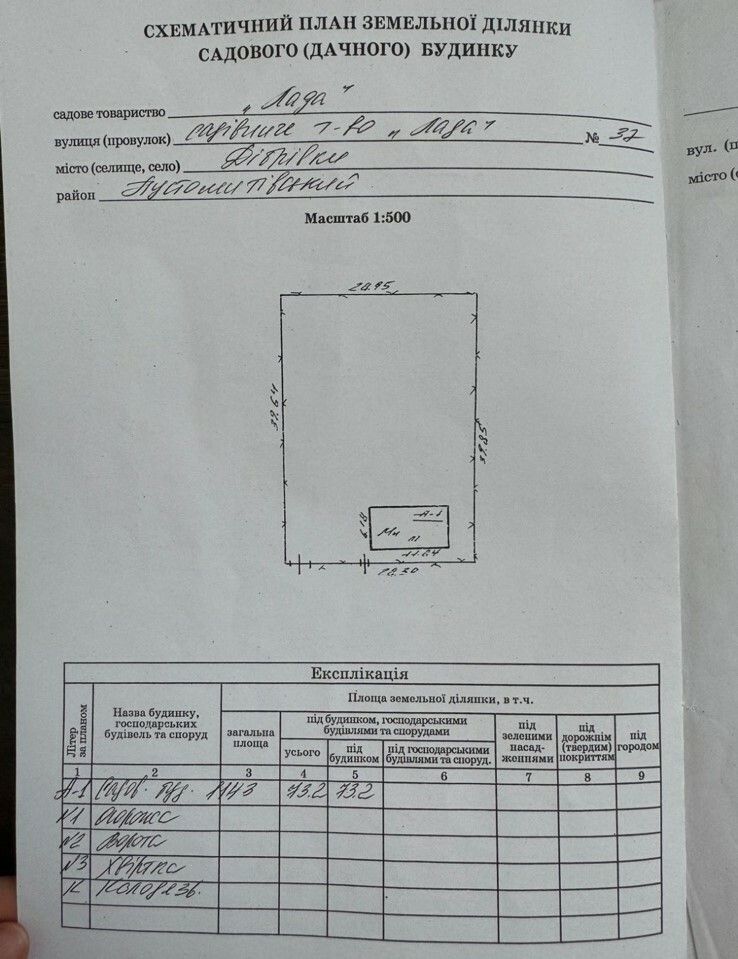 СХЕМАТИЧНИЙ ПЛАН ЗЕМЕЛЬНОЇ ДІЛЯНКИ
САДОВОГО (ДАЧНОГО) БУДИНКУ
садове товариство „Лада"
вулиця (провулок) садівниче т-во „Лада" № 37
місто (селище, село) Дібрівки
район Пустомитівський
вул. (п
місто (с
Масштаб 1:500
А-1
Експлікація
Літер за планом
Назва будинку, господарських будівель та споруд
Площа земельної ділянки, в т.ч.
загальна площа
під будинком, господарськими будівлями та спорудами
усього
під будинком
під господарськими будівлями та споруд.
під зеленими насад-женнями
під дорожнім (твердим) покриттям
під городом
1 2 3 4 5 6 7 8 9
А-1 Садов. буд. 1143 73.2 73.2
№1 Огорожа
№2 Ворота
№3 Хвіртка
К Колодязь.